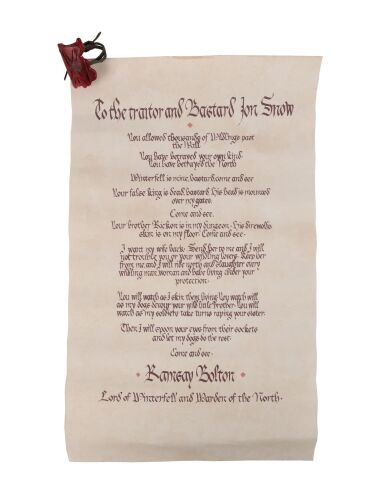 To the traitor and Bastard Jon Snow
You allowed thousands of Wildlings past
the Wall.
You have betrayed your own kind
You have betrayed the North
Winterfell is mine, bastard, come and see
Your false king is dead, bastard. His head is mounted
over my gates.
Come and see.
Your brother Rickon is in my dungeon. His direwolf's
skin is on my floor. Come and see.
I want my wife back. Send her to me and I will
not trouble you or your wildling lovers. Keep her
from me and I will ride north and slaughter every
wildling man, woman and babe living under your
protection.
You will watch as I skin them living. You will watch
as my dogs devour your wild little brother. You will
watch as my soldiers take turns raping your sister.
Then I will spoon your eyes from their sockets
and let my dogs do the rest.
Come and see.
Ramsay Bolton
Lord of Winterfell and Warden of the North.